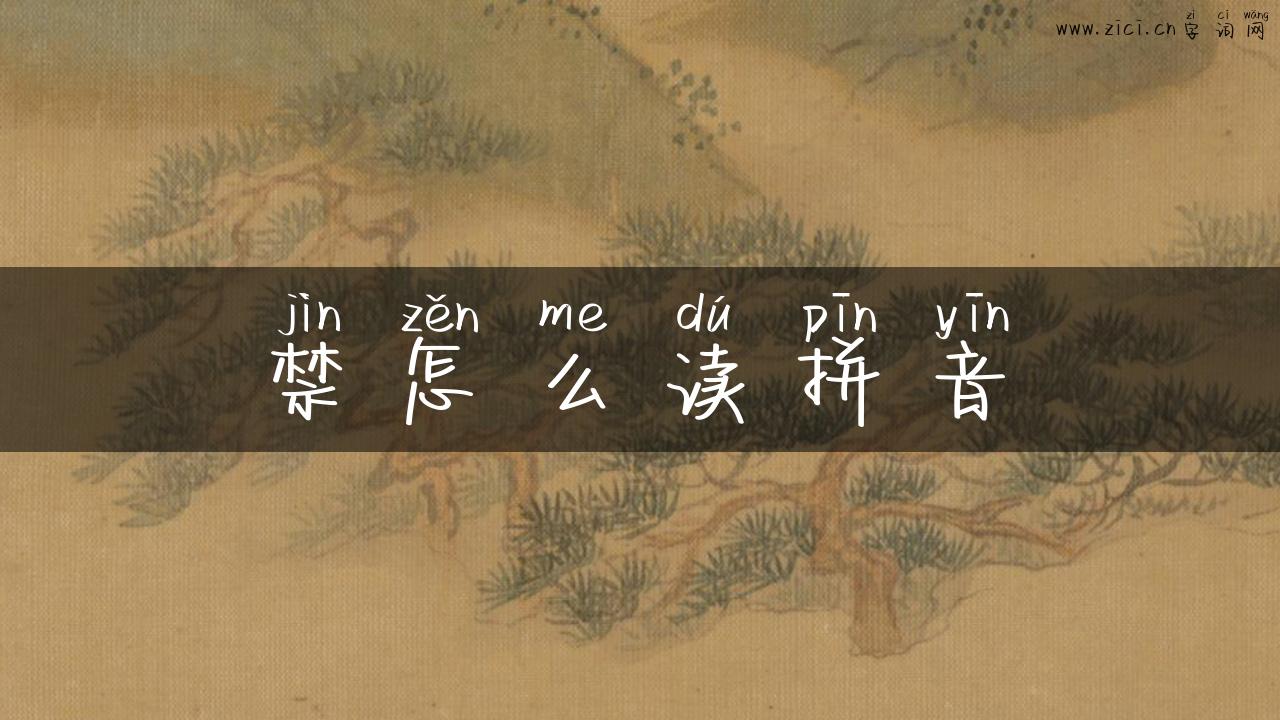 zì cí wǎng
www.zici.cn 字词网
jìn zěn me dú pīn yīn
禁怎么读拼音